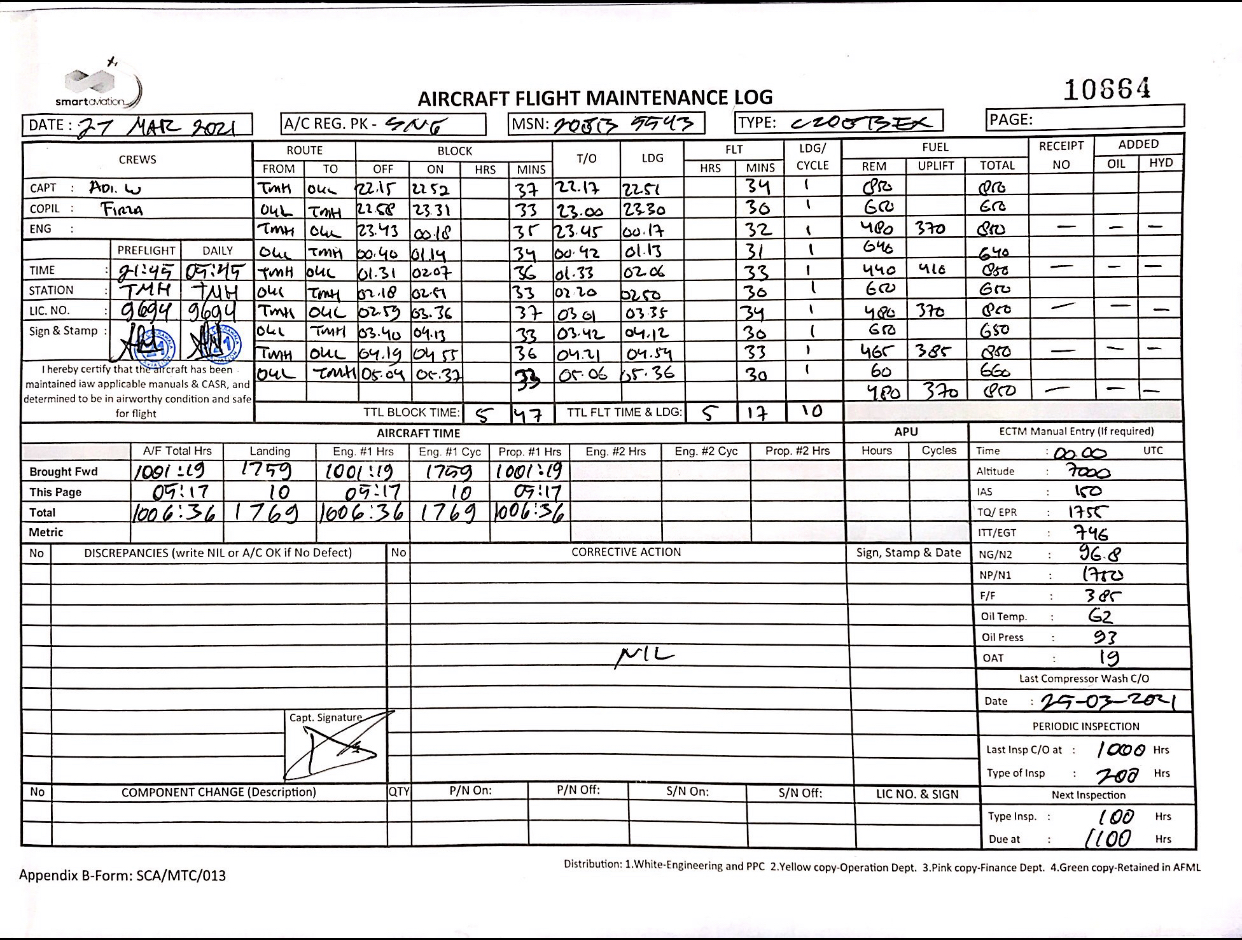 smartaviation
10664
AIRCRAFT FLIGHT MAINTENANCE LOG
DATE : 27 MAR 2021 A/C REG. PK - SNG MSN: 208B 5543 TYPE: C208BEX PAGE:
CREWS ROUTE BLOCK T/O LDG FLT LDG/CYCLE FUEL RECEIPT NO ADDED
FROM TO OFF ON HRS MINS HRS MINS REM UPLIFT TOTAL OIL HYD
CAPT : ADI. W TMH OUL 22.15 22 52 37 22.17 22 51 34 1 850 850
COPIL : FIRZA OUL TMH 22 58 23.31 33 23.00 23.30 30 1 650 650
ENG : TMH OUL 23.43 00.18 35 23.45 00.17 32 1 480 370 850 — — —
PREFLIGHT DAILY OUL TMH 00.40 01.14 34 00.42 01.13 31 1 640 640
TIME : 21:45 05:45 TMH OUL 01.31 02.07 36 01.33 02.06 33 1 440 410 850 — — —
STATION : TMH TMH OUL TMH 02.18 02.51 33 02 20 02.50 30 1 650 650
LIC. NO. : 9694 9694 TMH OUL 02.59 03.36 37 03 01 03 35 34 1 480 370 850 — —
Sign & Stamp : OUL TMH 03.40 04.13 33 03.42 04.12 30 1 650 650
TMH OUL 04.19 04 55 36 04.21 04.54 33 1 465 385 850 — — —
OUL TMH 05.04 05.37 33 05.06 05.36 30 1 60 660
480 370 850 — —
I hereby certify that the aircraft has been
maintained iaw applicable manuals & CASR, and
determined to be in airworthy condition and safe
for flight
TTL BLOCK TIME: 5 47 TTL FLT TIME & LDG: 5 17 10
AIRCRAFT TIME APU ECTM Manual Entry (If required)
A/F Total Hrs Landing Eng. #1 Hrs Eng. #1 Cyc Prop. #1 Hrs Eng. #2 Hrs Eng. #2 Cyc Prop. #2 Hrs Hours Cycles Time : 00.00 UTC
Brought Fwd 1001:19 1759 1001:19 1759 1001:19 Altitude : 7000
This Page 05:17 10 05:17 10 05:17 IAS : 150
Total 1006:36 1769 1006:36 1769 1006:36 TQ/ EPR : 1755
Metric ITT/EGT : 746
No DISCREPANCIES (write NIL or A/C OK if No Defect) No CORRECTIVE ACTION Sign, Stamp & Date NG/N2 : 96.8
NP/N1 : 1750
F/F : 385
Oil Temp. : 62
Oil Press : 93
NIL OAT : 19
Last Compressor Wash C/O
Date : 25-03-2021
Capt. Signature
PERIODIC INSPECTION
Last Insp C/O at : 1000 Hrs
Type of Insp : 200 Hrs
No COMPONENT CHANGE (Description) QTY P/N On: P/N Off: S/N On: S/N Off: LIC NO. & SIGN Next Inspection
Type Insp. : 100 Hrs
Due at : 1100 Hrs
Distribution: 1.White-Engineering and PPC 2.Yellow copy-Operation Dept. 3.Pink copy-Finance Dept. 4.Green copy-Retained in AFML
Appendix B-Form: SCA/MTC/013